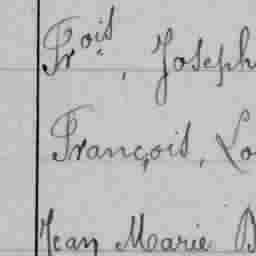 Frois, Joseph
François, Lo
Jean Marie D